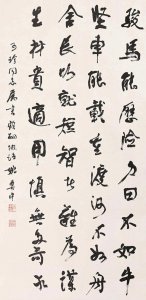 駿馬能歷險力田不如牛
堅車能載重渡河不如舟
舍長以就短智者難為謀
生材貴適用慎無多苛求
同志屬書顧嗣協詩姚奠中